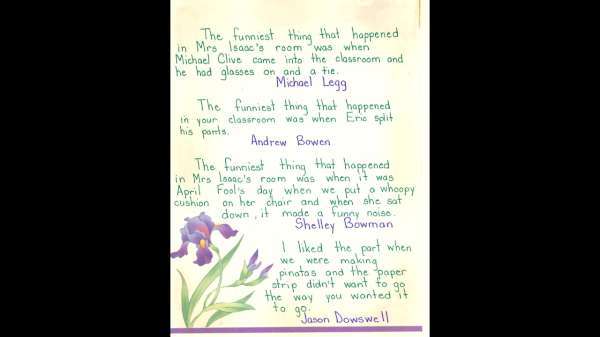 The funniest thing that happened
in Mrs Isaac's room was when
Michael Clive came into the classroom and
he had glasses on and a tie.
Michael Legg
The funniest thing that happened
in your classroom was when Eric split
his pants.
Andrew Bowen
The funniest thing that happened
in Mrs Isaac's room was when it was
April Fool's day when we put a whoopy
cushion on her chair and when she sat
down, it made a funny noise.
Shelley Bowman
I liked the part when
we were making
pinatas and the paper
strip didn't want to go
the way you wanted it
to go.
Jason Dowswell